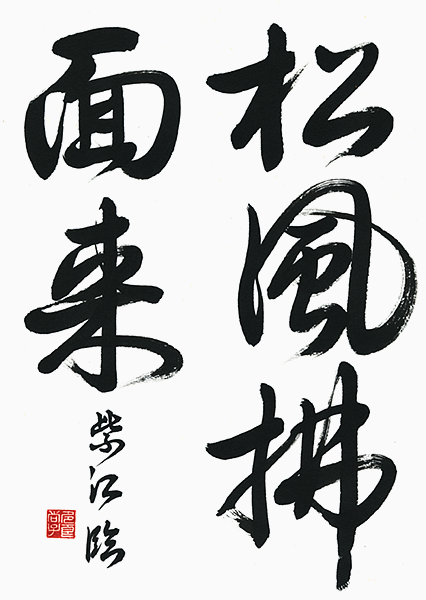 松風拂
面来
紫江臨